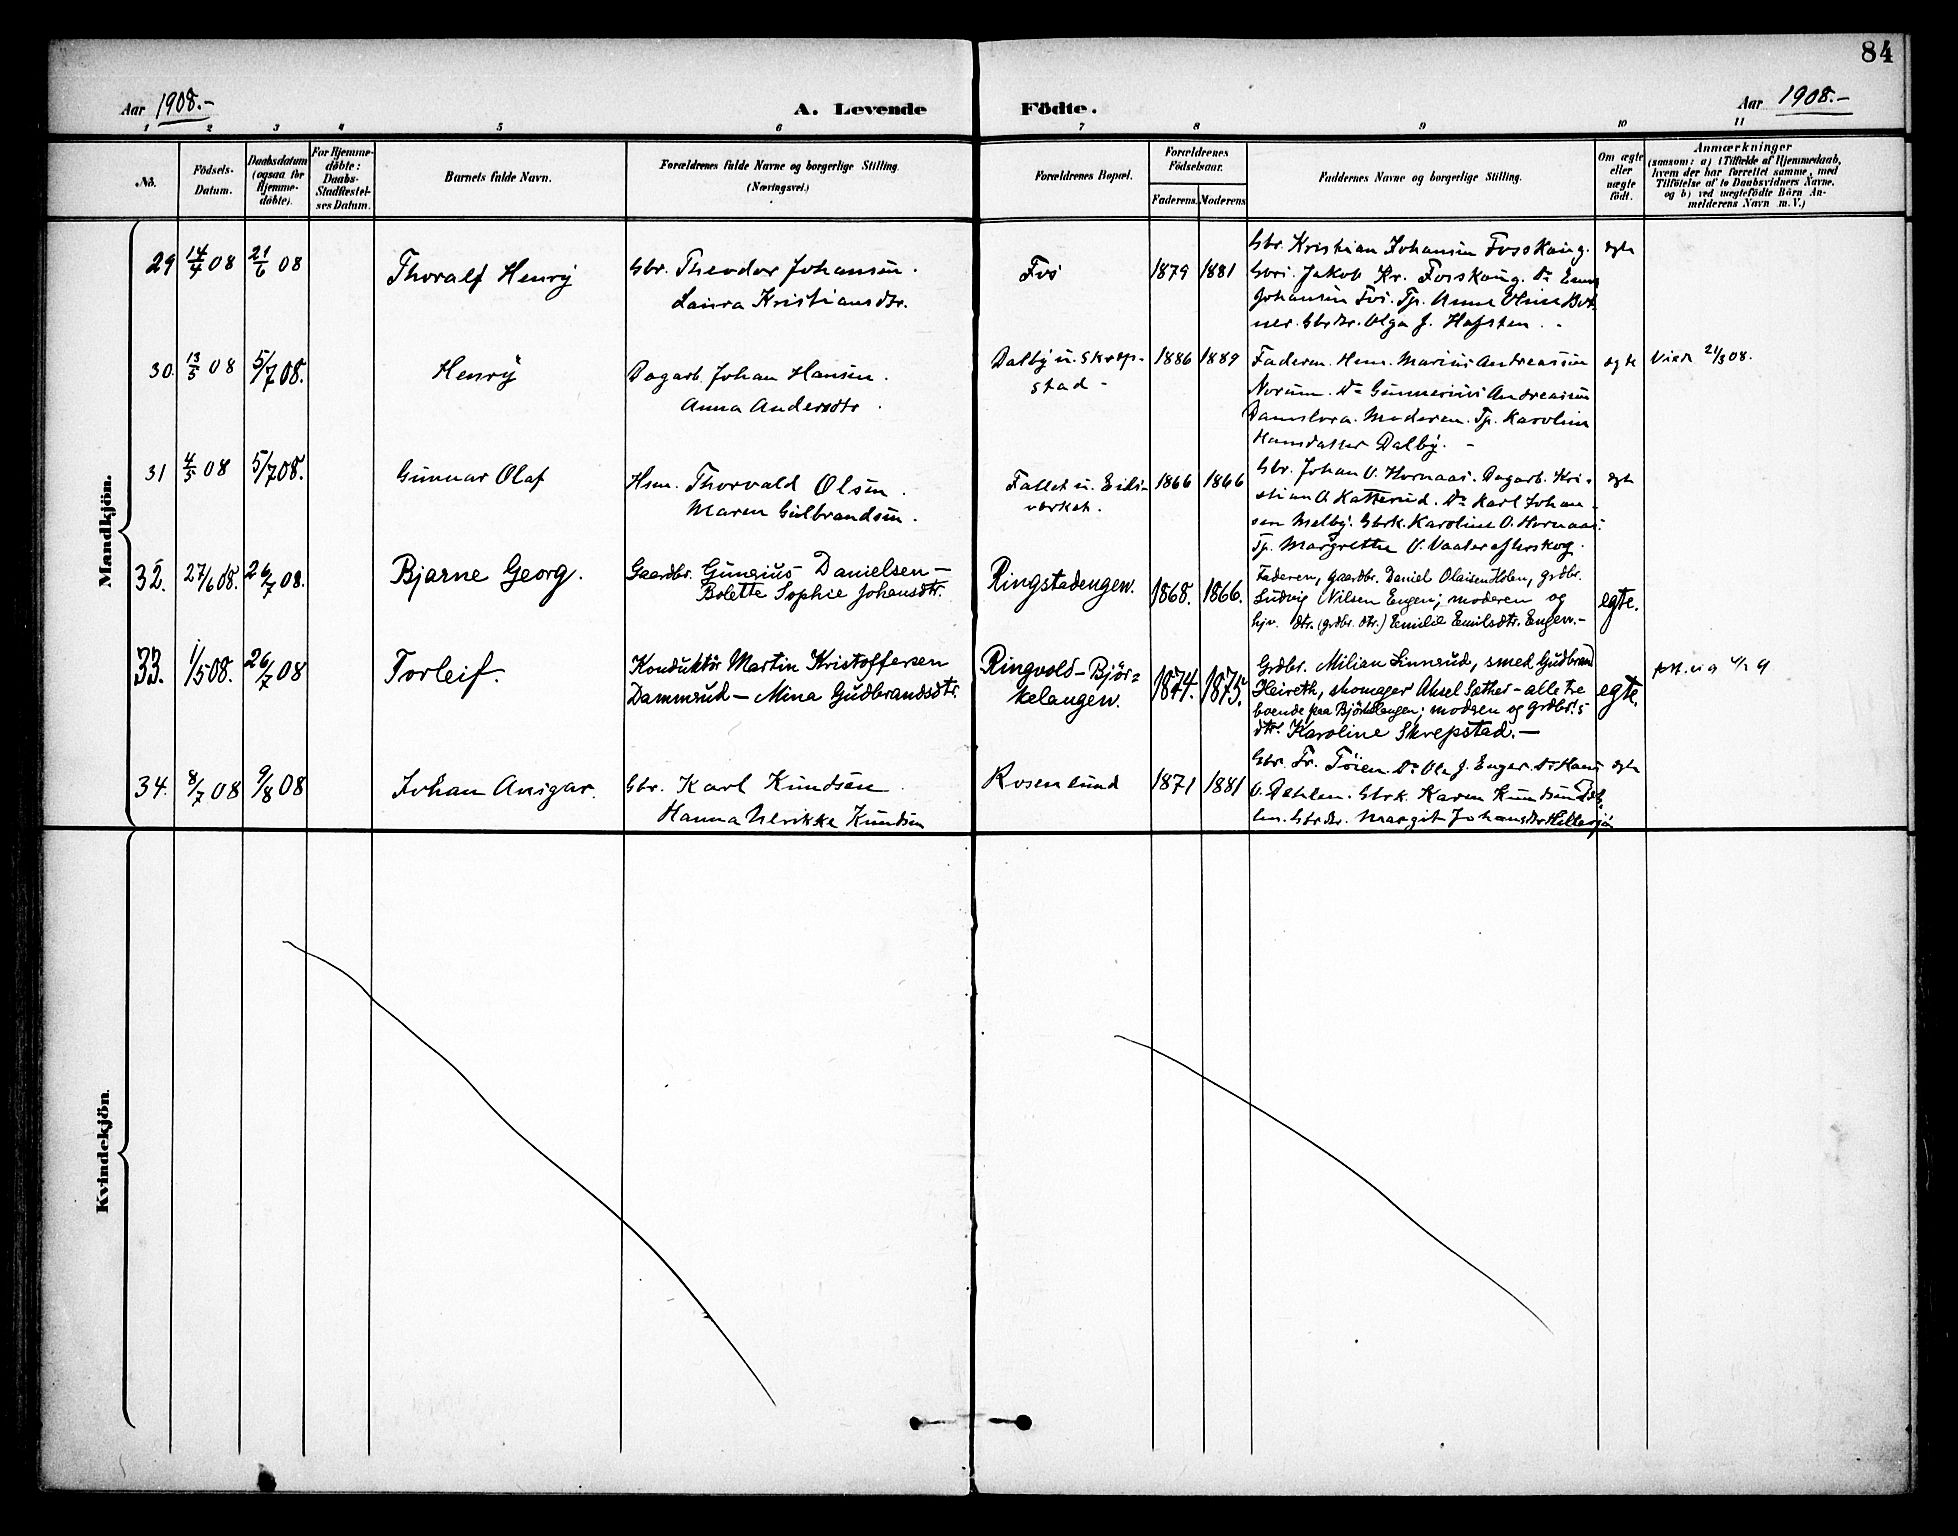 84
Aar 1908.-
A. Levende Födte.
Aar 1908.-
1 2 3 4 5 6 7 8 9 10 11
No.
Födsels-
Datum.
Daabsdatum
(ogsaa for
Hjemme-
døbte).
For Hjemme-
døbte:
Daabs-
Stadfæstel-
ses Datum.
Barnets fulde Navn.
Forældrenes fulde Navne og borgerlige Stilling.
(Næringsvei.)
Forældrenes Bopæl.
Forældrenes
Födselsaar.
Faderens. Moderens
Faddernes Navne og borgerlige Stilling.
Om ægte
eller
uægte
født.
Anmærkninger
(saasom: a) i Tilfælde af Hjemmedaab,
hvem der har forrettet samme, med
Tilföielse af to Daabsvidners Navne,
og b) ved uægtefödte Börn An-
melderens Navn m. V.)
Mandkjön.
29 14/4 08 21/6 08 Thoralf Henry
Gbr. Theodor Johansen.
Laura Kristiansdtr.
Fos 1879 1881
Gbr. Kristian Johansen Fosskaug.
Gbr. Jakob Kr. Fosskaug. Do
Johansen Fos. Tp. Anne
ner. Gbrdtr. Olga J. Hafsten.
egte
30. 13/5 08 5/7 08. Henry
Dagarb. Johan Hansen.
Anna Andersdtr.
Dalby u. Skrep-
stad -
1886 1889
Faderen. Hsm. Marius Andreassen
Norum. Do Gunnerius Andreassen
Damslora. Moderen. Tp. Karoline
Hansdatter Dalby. -
egte 21/3 08.
31 4/5 08 5/7 08. Gunnar Olaf
Hsm. Thorvald Olsen.
Maren Gulbrandsen.
Fallet u. Eids-
verket.
1866 1866
Gbr. Johan O. Hornaas. Dagarb. Kri-
stian O. Katterud. Do Karl Johan-
sen Melby. Gbrk. Karoline O. Hornaas.
Tp. Margrethe O.
egte
32. 27/6 08. 26/7 08. Bjarne Georg.
Gaardbr. Gunerius Danielsen -
Bolette Sophie Johansdtr.
Ringstadengen. 1868. 1866.
Faderen, gaardbr. Daniel Olaisen Holen, grdbr.
Ludvig Nilsen Engen; moderen og
dtr. (grdbr. dtr.) Emilie Emilsdtr. Engen.-
egte.
33. 1/5 08. 26/7 08 Torleif.
Konduktör Martin Kristoffersen
Dammerud - Mina Gudbrandsdtr.
Ringvold - Björ-
kelangen.
1874. 1875.
Grdbr. Milian Linnerud, smed Gudbran
skomager Aksel Sæther - alle tre
boende paa Björkelangen; modren og grdbr.s
dtr. Karoline Skrepstad. -
egte.
34. 8/7 08 9/8 08 Johan Ansgar.
Gbr. Karl Knudsen.
Hanna Ulrikke Knudsen
Rosenlund 1871 1881
Gbr. Fr. Töien. Do Ole J. Enger. Do Hans
O. Dehlen. Gbrk. Karen Knudsen Deh-
len. Gbrdtr. Margit Johansdtr
egte
Kvindekjön.